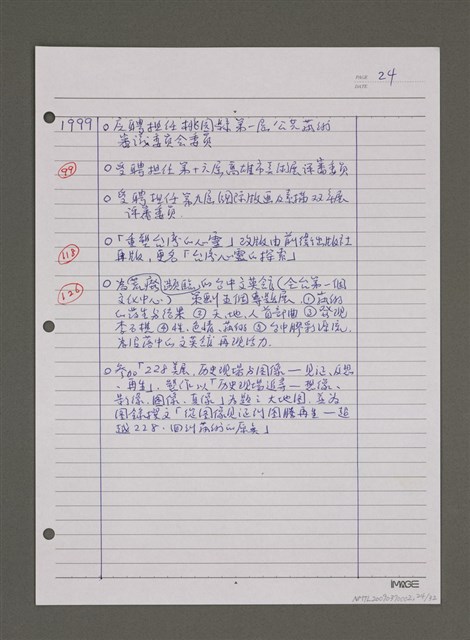 PAGE 24
DATE
1999 ○ 应聘担任桃園縣第一屆公共艺術
審議委員会委員
99 ○ 受聘担任第十六屆高雄市美術展評審委員
○ 受聘担任第九屆國际版画及素描双年展
評審委員
118 ○「重塑台湾的心靈」改版由前衛出版社
再版,更名「台湾心靈的探索」
126 ○ 為荒廢瀕臨的台中文英館(全台第一個
文化中心) 策劃五個專題展 ①艺術
的誕生与結果 ②天、地、人首部曲 ③發現
李石樵 ④性、色情、艺術 ⑤台中膠彩源流.
為沒落中的文英館再現活力.
○ 參加「228美展,历史現場与圖像—見証、反思
、再生」,製作以「历史現場追尋—想像、
影像、圖像、真像」為題之大地圖,並為
圖錄撰文「從圖像見証到圖騰再生—超
越228,回到艺術的原真」
IMAGE
NMTL20090370002_24/42